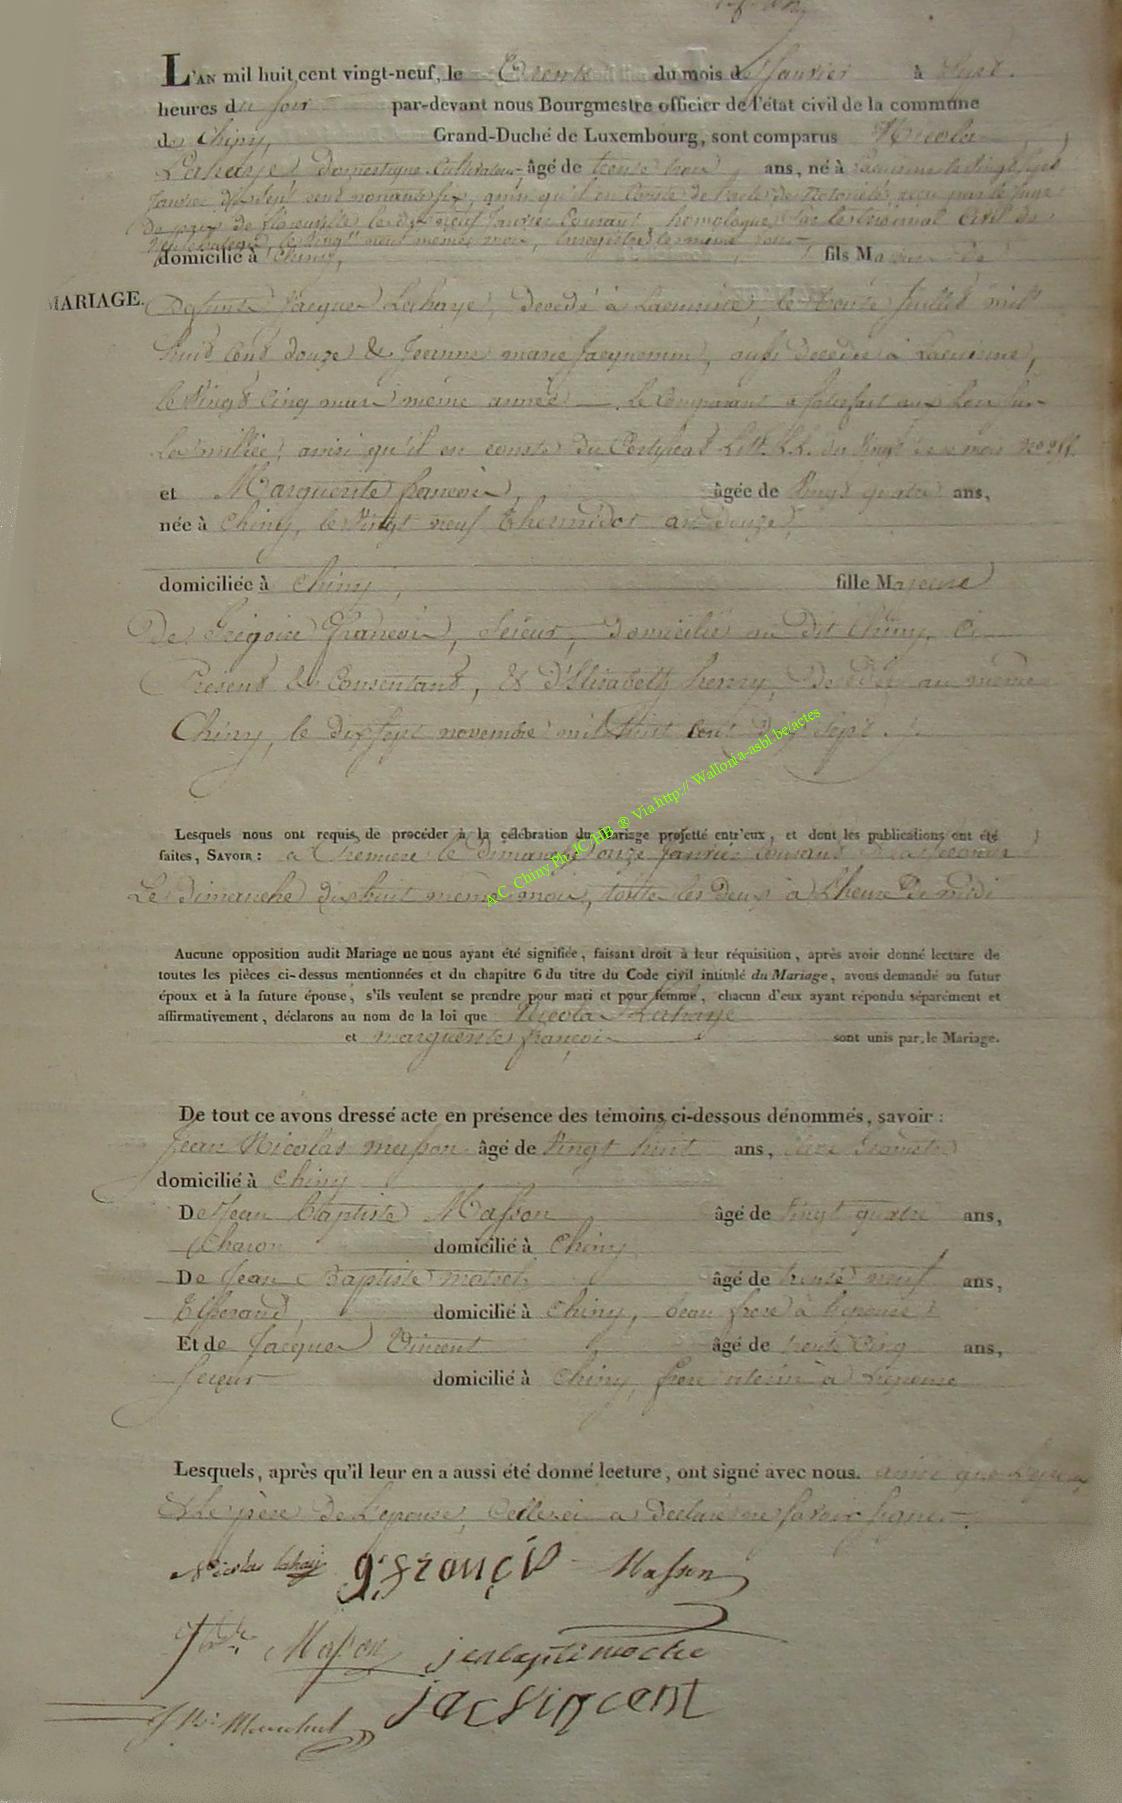 L'AN mil huit cent vingt-neuf, le Trente du mois de Janvier à Sept
heures du Soir par-devant nous Bourgmestre officier de l'état civil de la commune
de Chiny, Grand-Duché de Luxembourg, sont comparus Nicolas
Lahaye, domestique Cultivateur, âgé de trente trois ans, né à Lacuisine le vingt sept
Janvier dix sept cent nonante six, ainsi qu'il en Conste de l'acte de Notoriété, reçu par le Juge
de paix de florenville le dix neuf Janvier Courant, homologué par le tribunal Civil de
Neufchateau, le vingt neuf même mois, Enregistré le même jour
domicilié à Chiny, fils Majeur De
MARIAGE.
Defunts Jacques Lahaye, decedé à Lacuisine, le trente Juillet mil
huit Cent douze & Jeanne marie Jacquemin, aussi decedée à Lacuisine,
le Vingt Cinq mars même année. Le Comparant a satisfait aux Lois sur
La milice, ainsi qu'il en conste du Certificat Litt. LL. du Vingt de ce mois No
et Marguerite françois, âgée de Vingt quatre ans,
née à Chiny, le Vingt neuf Thermidor an douze,
domiciliée à Chiny, fille Majeure
De Grégoire François, Scieur, domicilié au dit Chiny, Ci
Present & Consentant, & d'Elisabeth henry, Decedée au même
Chiny, le dix sept novembre mil huit Cent dix sept.
Lesquels nous ont requis de procéder à la célébration du Mariage projetté entr'eux, et dont les publications ont été
faites, SAVOIR : La Premiere le dimanche onze Janvier Courant & la Seconde
Le Dimanche dix huit même mois, toutes les deux à L'heure De midi
Aucune opposition audit Mariage ne nous ayant été signifiée, faisant droit à leur réquisition, après avoir donné lecture de
toutes les pièces ci-dessus mentionnées et du chapitre 6 du titre du Code civil intitulé du Mariage, avons demandé au futur
époux et à la future épouse, s'ils veulent se prendre pour mari et pour femme, chacun d'eux ayant répondu séparément et
affirmativement, déclarons au nom de la loi que Nicolas Lahaye
et marguerite françois sont unis par le Mariage.
De tout ce avons dressé acte en présence des témoins ci-dessous dénommés, savoir :
Jean Nicolas masson âgé de Vingt huit ans,
domicilié à Chiny
De Jean Baptiste Masson âgé de Vingt quatre ans,
Charon domicilié à Chiny
De Jean Baptiste âgé de trente neuf ans,
Tisserand, domicilié à Chiny, beau frere à L'epouse
Et de Jacques Vincent âgé de trente Cinq ans,
Scieur domicilié à Chiny, frere uterin à L'epouse
Lesquels, après qu'il leur en a aussi été donné lecture, ont signé avec nous. ainsi que L'epoux
& le père de L'epouse, Celle ci a declaré ne savoir signer.
Nicolas lahaij g. françis Masson
Masson
jac vincent
A.C. Chiny Ph. JC HB ® Via http:// Wallonia-asbl.be/actes